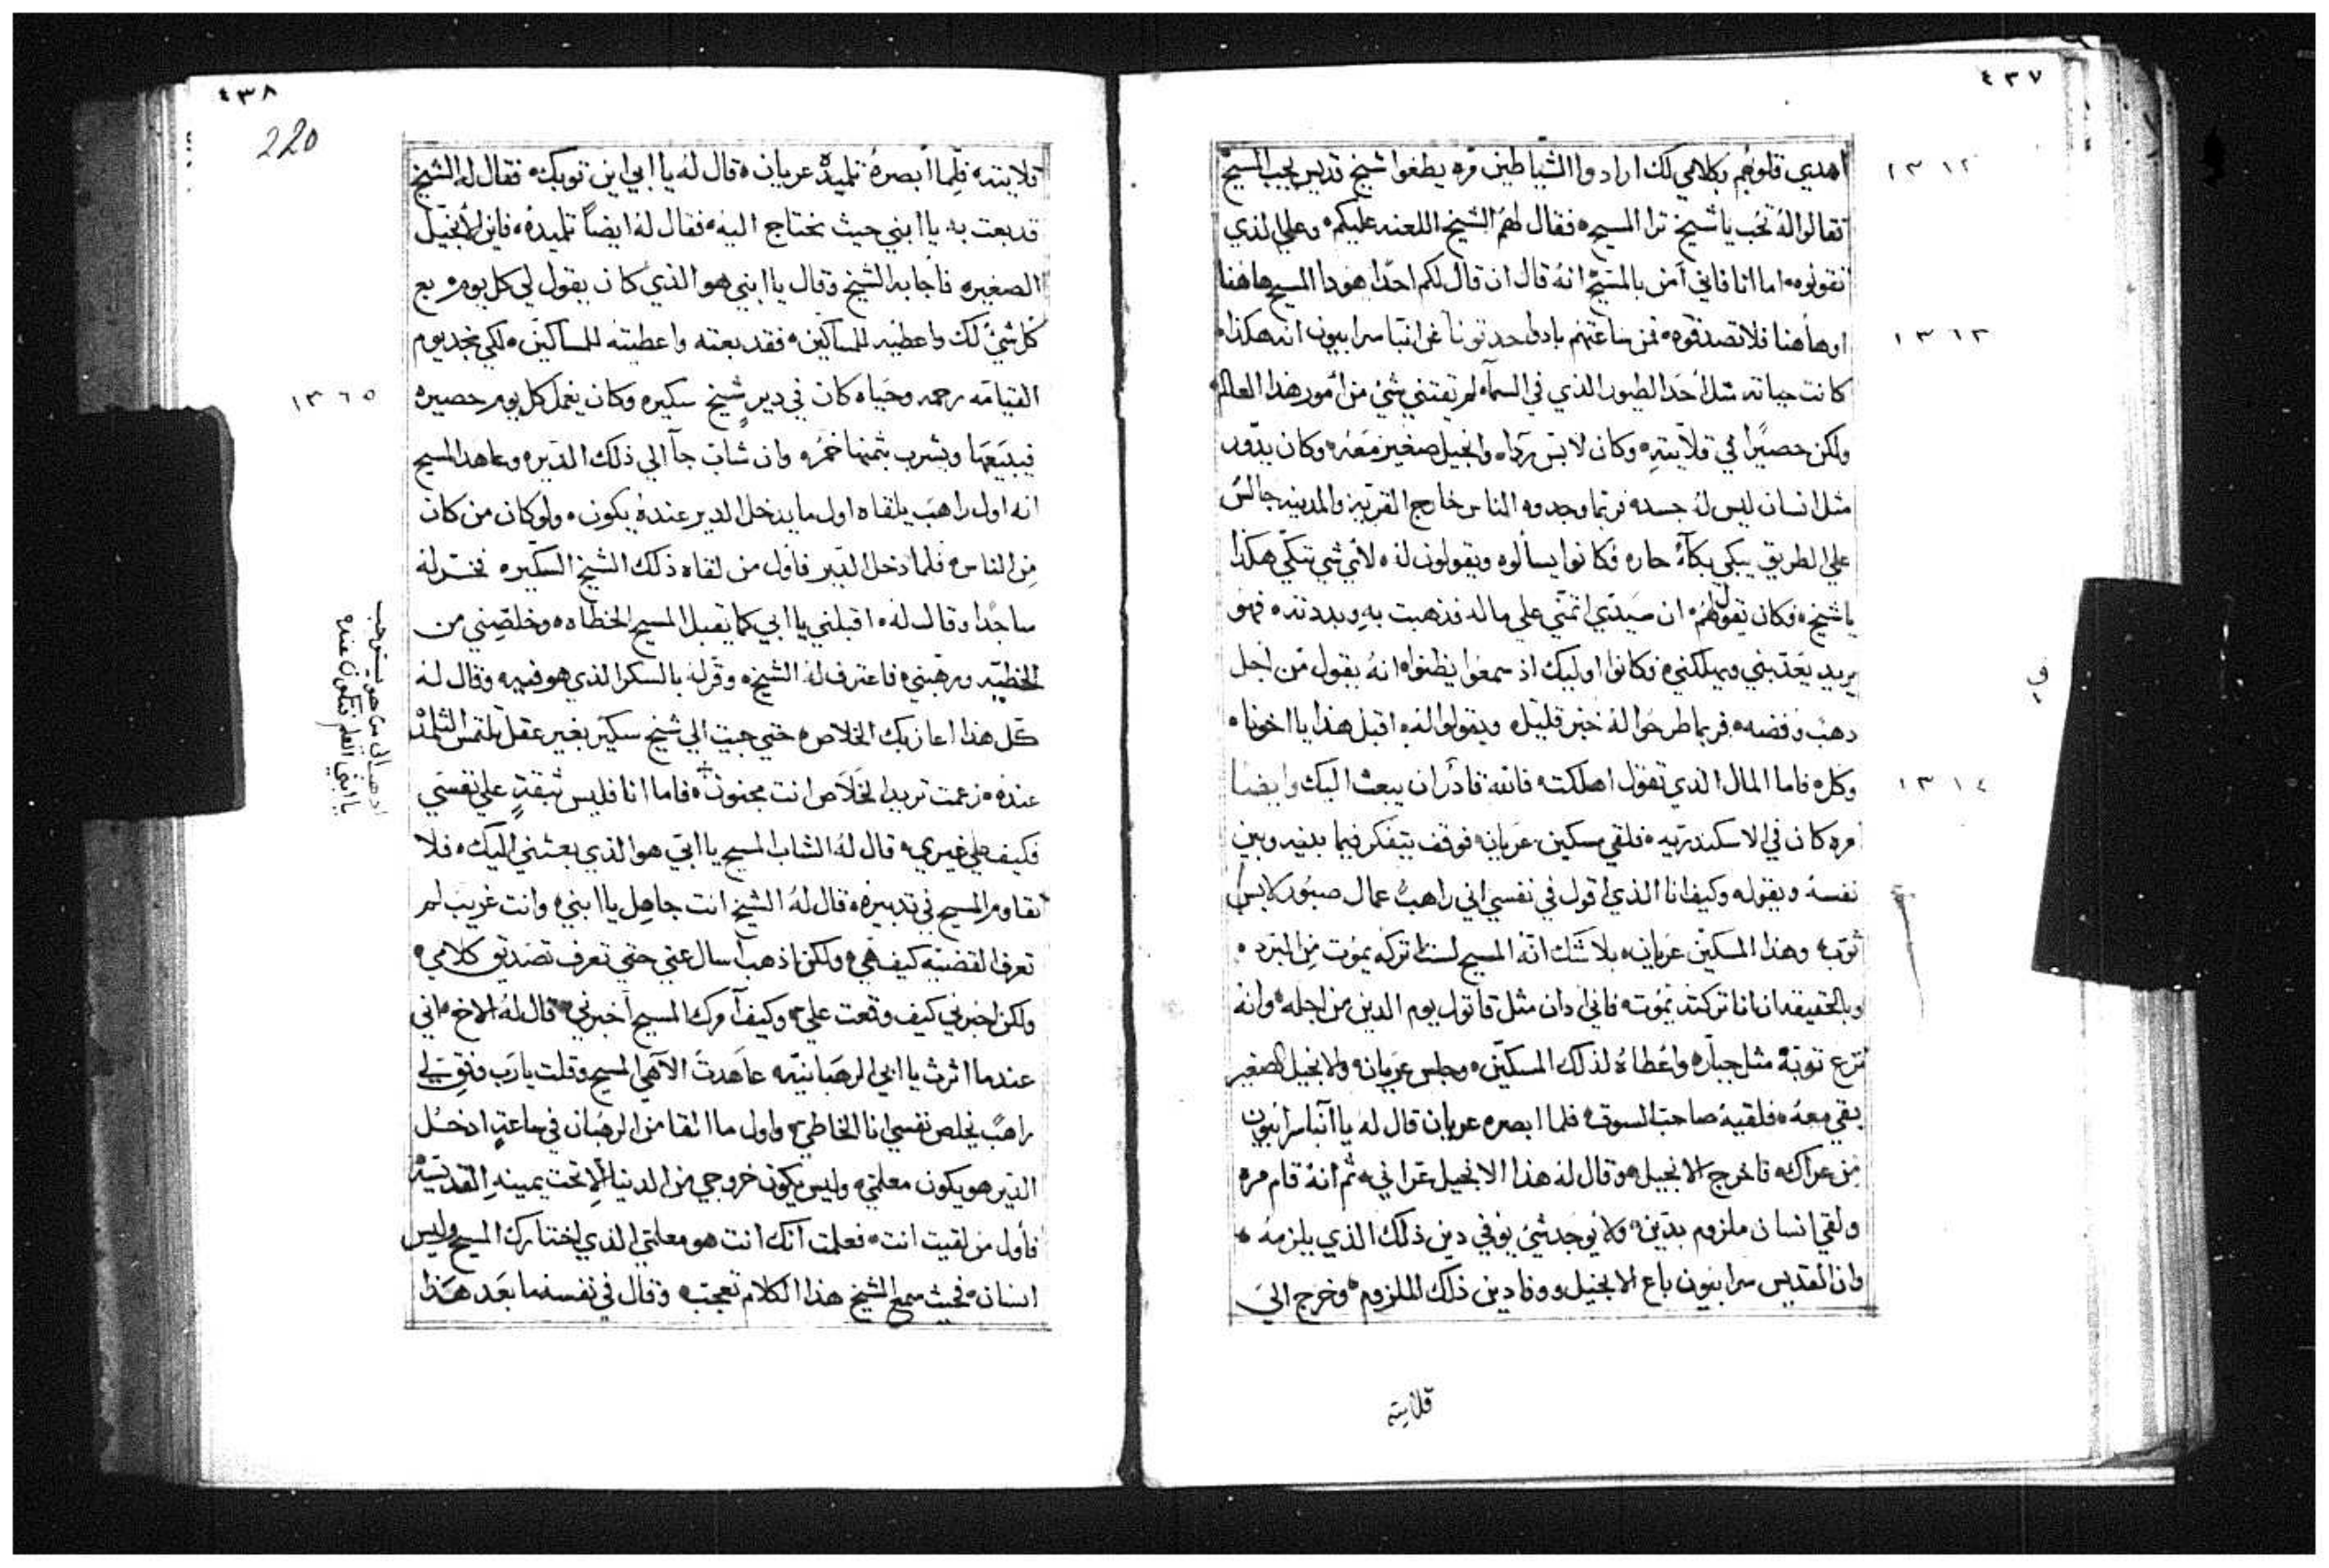 ٤٣٧
اهدي قلوبهم بكلامي لك ارادوا الشياطين مره يطغوا شيخ قديس يحب المسيح
فقالوا له تحب يا شيخ ترا المسيح ه فقال لهم الشيخ اللعنه عليكم ه وعلي الذي
تقولوه ه اما انا فاني آمن بالمسيح انه قال ان قال لكم احدًا هودا المسيح هاهنا
او هاهنا فلا تصدقوه ه فمن ساعتهم بادوا حدثونا عن انبا سرابيون انه هكذا ه
كانت حياته مثل أحد الطيور الذي في السمآء لم يقتني شي من أمور هذا العالم
ولكن حصيرًا في قلايته ه وكان لابس ردا ه وانجيل صغير معه ه وكان يدور
مثل انسان ليس له جسد ه فربما وجدوه الناس خارج القريه والمدينه جالس
علي الطريق يبكي بكآء حار ه فكانوا يسألوه ويقولون له ه لأي شي تبكي هكذا
يا شيخ ه فكان يقول لهم ه ان سيدي اتمني علي ماله فذهبت به وبددته ه فهو
يريد يعذبني ويهلكني ه فكانوا اوليك اذ سمعوا يظنوا ه انه يقول من اجل
دهب وفضه ه فربما طرحوا له خبز قليل ه ويقولوا له ه اقبل هذا يا اخونا ه
وكل ه فاما المال الذي تقول اهلكته ه فالله قادر ان يبعث اليك وايضًا
مره كان في الاسكندريه ه فلقي مسكين عريان ه فوقف يتفكر فيما بينه وبين
نفسه ويقول ه وكيف انا الذي اقول في نفسي اني راهب عمال صبور لابس
ثوب ه وهذا المسكين عريان ه بلا شك انه المسيح لست اتركه يموت من البرد ه
وبالحقيقه ان انا تركته يموت ه فاني ادان مثل قاتول يوم الدين من اجله ه وانه
نزع توبه مثل جبار ه واعطاه لذلك المسكين ه وجلس عريان ه والانجيل الصغير
بقي معه ه فلقيه صاحب السوق ه فلما ابصره عريان قال له يا آنبا سرابيون
من عراك ه فاخرج الانجيل ه وقال له هذا الانجيل عراني ه ثم انه قام مره
ولقي انسان ملزوم بدين ه ولا يوجد شي يوفي دين ذلك الذي يلزمه ه
وان القديس سرابيون باع الانجيل ه ووفا دين ذلك الملزوم ه وخرج الي
قلايته
١٣٦٢
١٣٦٣
١٣٦٤
٤٣٨
220
قلايته ه فلما أبصره تلميذه عريان ه قال له يا ابي اين توبك ه فقال له الشيخ
قد بعت به يا ابني حيث نحتاج اليه ه فقال له ايضاً تلميده ه فاين الأنجيل
الصغير ه فأجابه الشيخ وقال يا ابني هو الذي كان يقول لي كل يوم ه بع
كل شي لك واعطيه للمساكين ه فقد بعته واعطيته للمساكين ه لكي نجد يوم
القيامه رحمه وحياه كان في دير شيخ سكير ه وكان يعمل كل يوم حصيره
فيبيعها ويشرب بثمنها خمر ه وان شاب جآ الي ذلك الدير ه وعاهد المسيح
انه اول راهب يلقاه اول ما يدخل الدير عنده يكون ه ولو كان من كان
من الناس ه فلما دخل الدير فاول من لقاه ذلك الشيخ السكير ه فخر له
ساجدًا وقال له ه اقبلني يا ابي كما يقبل المسيح الخطاه ه وخلصني من
الخطيه ورهبني ه فاعترف له الشيخ ه وقر له بالسكر الذي هو فيه ه وقال له
كل هذا اعازك الخلاص ه حتي جيت الي شيخ سكير بغير عقل تلتمس التلمذ
عنده ه زعمت تريد الخلاص انت مجنون ه فاما انا فليس ثقة علي نفسي
فكيف علي غيري ه قال له الشاب المسيح يا ابي هو الذي بعثني اليك ه فلا
تقاوم المسيح في تدبيره ه قال له الشيخ انت جاهل يا ابني ه وانت غريب لم
تعرف القضيه كيف هي ه ولكن اذهب اسال عني حتي تعرف تصديق كلامي ه
ولكن اخبرني كيف وقعت علي ه وكيف آمرك المسيح اخبرني ه قال له الاخ ه اني
عندما اثرت يا ابي الرهبانيه عاهدت الآهي المسيح وقلت يا رب وفق لي
راهب يخلص نفسي انا الخاطي ه واول ما القا من الرهبان في ساعة ادخل
الدير هو يكون معلمي ه وليس يكون خروجي من الدنيا إلا تحت يمينه القديسه
فاول من لقيت انت ه فعلمت آنك انت هو معلمي الذي اختارك المسيح وليس
انسان ه فحيث سمع الشيخ هذا الكلام تعجب ه وقال في نفسه ما بعد هذا
١٣٦٥
يا ابني اتعلم فتكون عنده